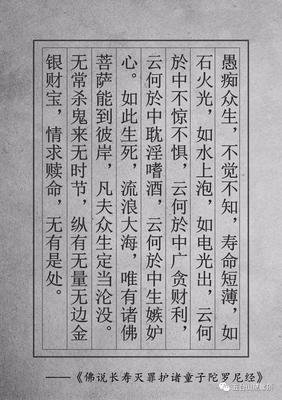 愚痴众生，不觉不知，寿命短薄，如
石火光，如水上泡，如电光出，云何
於中不惊不惧，云何於中广贪财利，
云何於中耽淫嗜酒，云何於中生嫉妒
心。如此生死，流浪大海，唯有诸佛
菩萨能到彼岸，凡夫众生定当沦没。
无常杀鬼来无时节，纵有无量无边金
银财宝，情求赎命，无有是处。
——《佛说长寿灭罪护诸童子陀罗尼经》
五台山